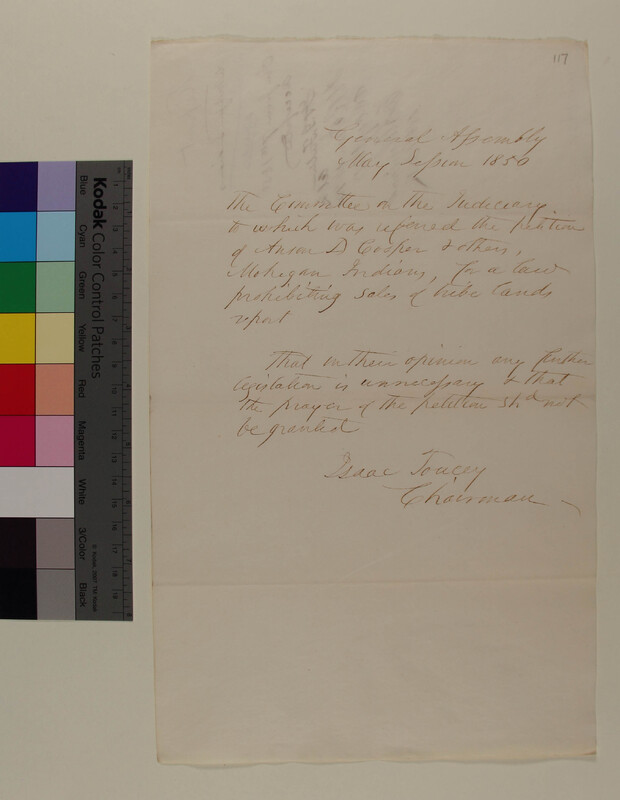 117
General Assembly
May Session 1850
The Committee on the Judiciary
to which was referred the petition
of Anson D Cooper & others,
Mohegan Indians, for a law
prohibiting sales of tribe lands
report
That in their opinion any further
legislation is unnecessary & that
the prayer of the petition shd not
be granted
Isaac Toucey
Chairman
Kodak Color Control Patches
Blue
Cyan
Green
Yellow
Red
Magenta
White
3/Color
Black